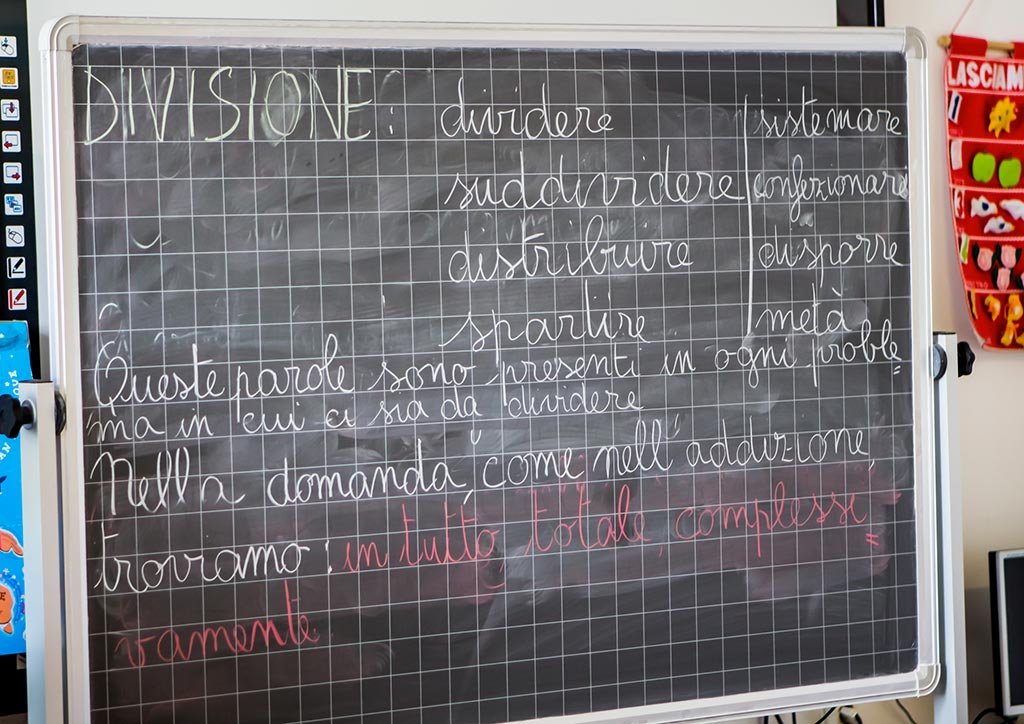 DIVISIONE: dividere | sistemare
suddividere | confezionare
distribuire | disporre
spartire | metà
Queste parole sono presenti in ogni proble=
ma in cui ci sia da "dividere"
Nella domanda, come nell'addizione,
troviamo: in tutto, totale, complessi=
vamente
LASCIAM